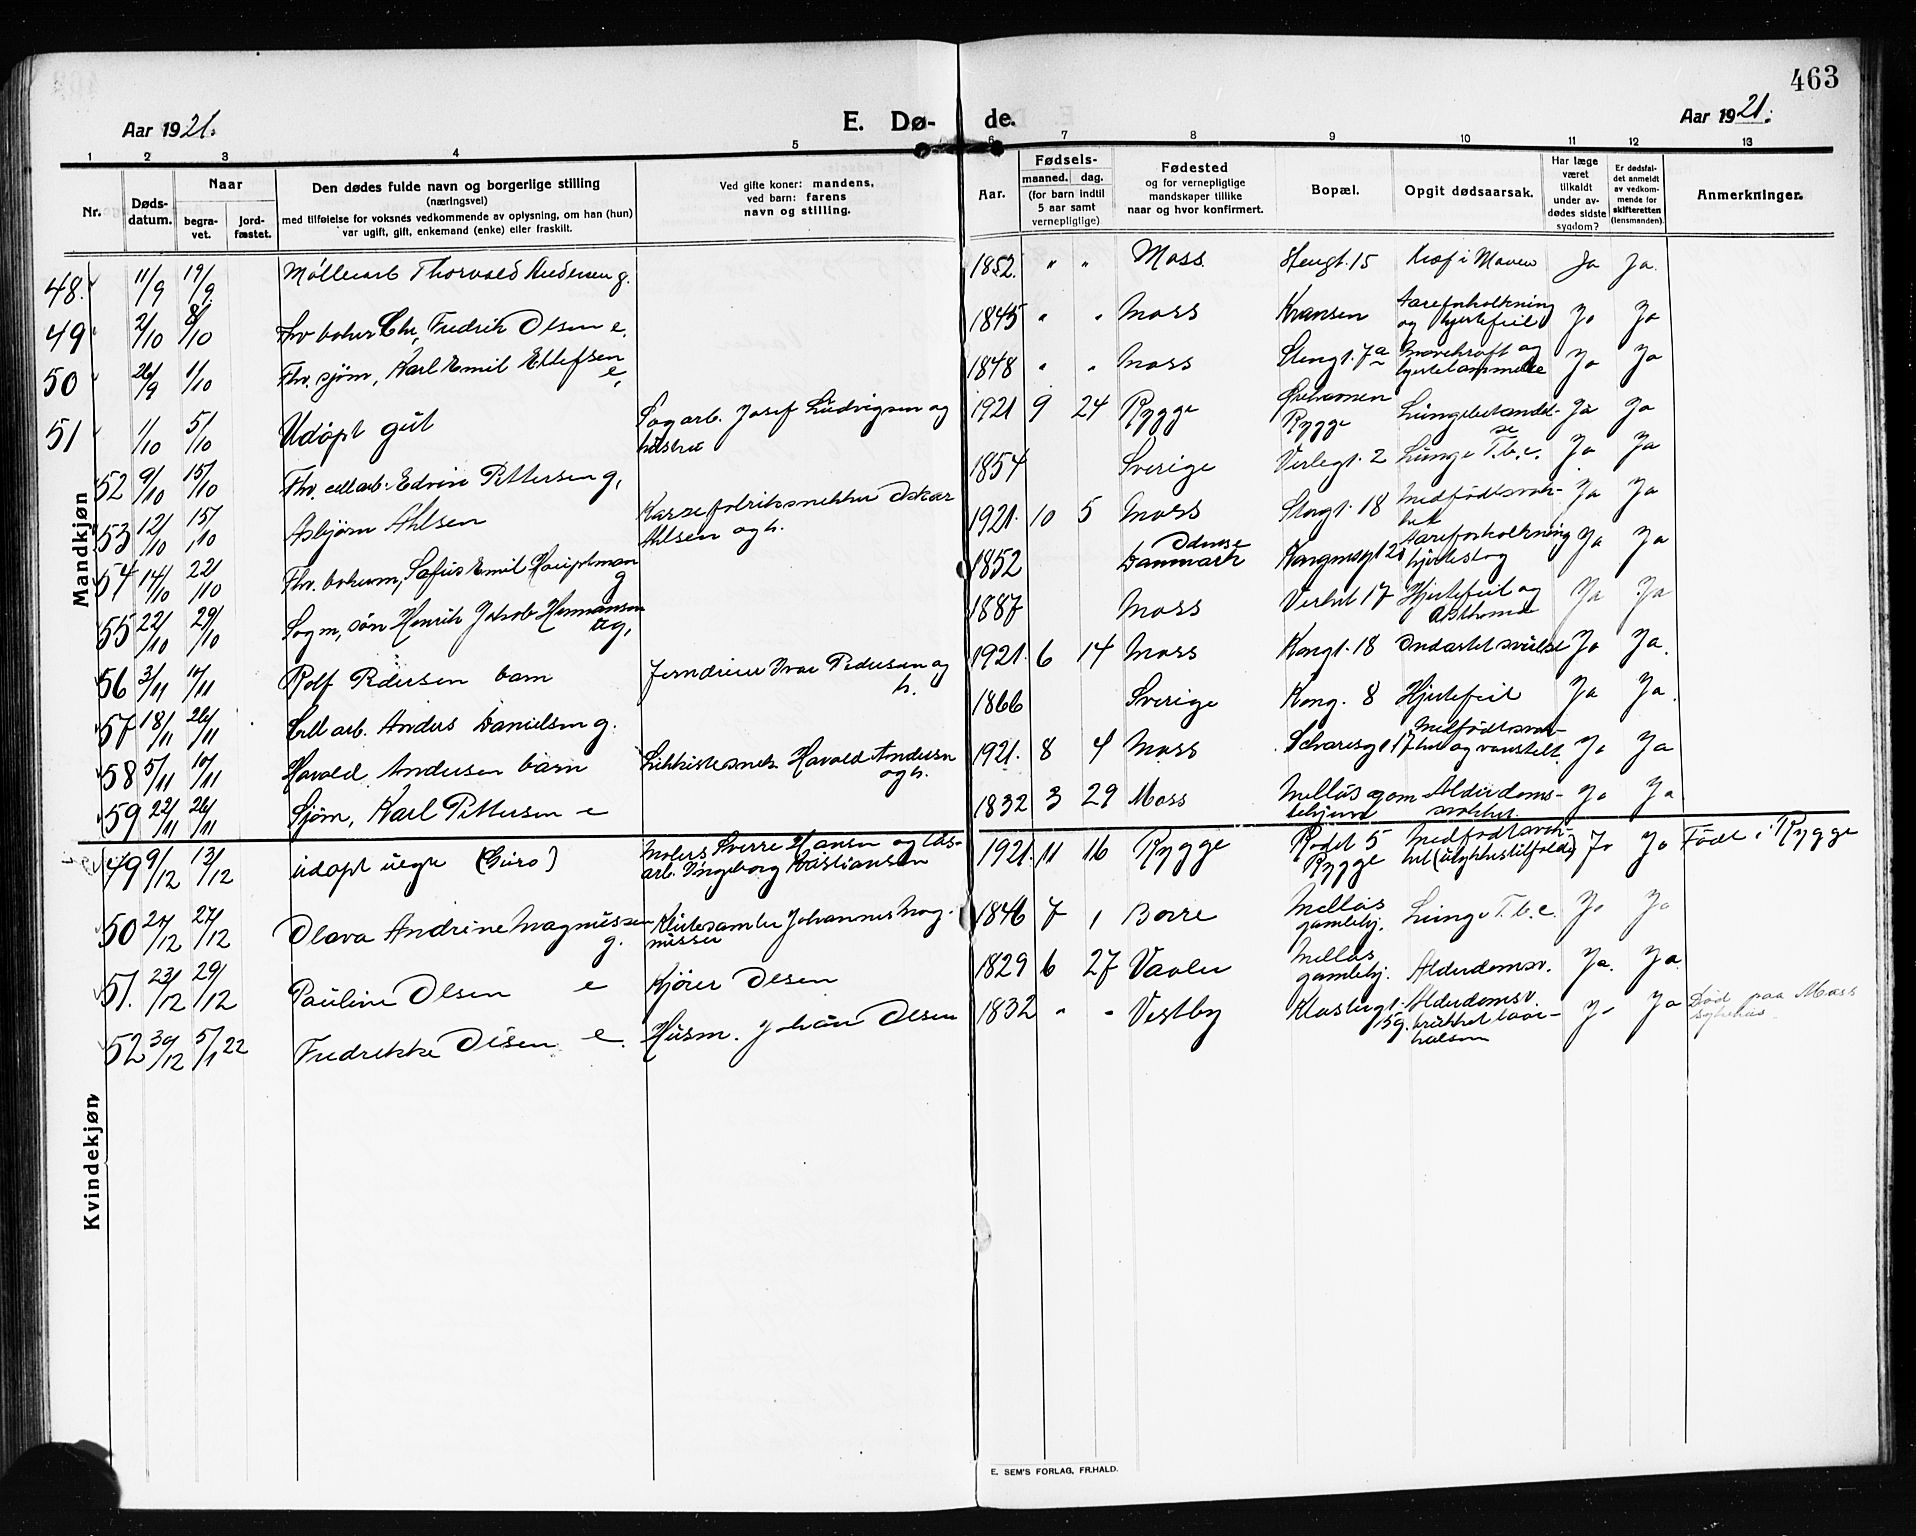 463
Aar 1921.
E. Dø-
de.
Aar 1921.
1 2 3 4 5 6 7 8 9 10 11 12 13
Nr.
Døds-
datum.
Naar
begra-
vet.
jord-
fæstet.
Den dødes fulde navn og borgerlige stilling
(næringsvei)
med tilføielse for voksnes vedkommende av oplysning, om han (hun)
var ugift, gift, enkemand (enke) eller fraskilt.
Ved gifte koner: mandens,
ved barn: farens
navn og stilling.
Aar.
Fødsels-
maaned. dag.
(for barn indtil
5 aar samt
vernepligtige)
Fødested
og for vernepligtige
mandskaper tillike
naar og hvor konfirmert.
Bopæl.
Opgit dødsaarsak.
Har læge
været
tilkaldt
under av-
dødes sidste
sygdom?
Er dødsfal-
det anmeldt
av vedkom-
mende for
skifteretten
(lensmanden).
Anmerkninger.
Mandkjøn
48. 11/9 19/9 Møllearb Thorvald Andersen g. 1852. " " Moss Stengt. 15 Kræf i Maven Ja Ja.
49 2/10 8/10 Fhv baker Chr. Fredrik Olsen e. 1845 " " Moss Kransen Aareforkalkning
og hjertefeil Ja Ja
50 26/9 1/10 Fhv. sjøm, Karl Emil Ellefsen
e, 1848 " " Moss Stengt. 7a Mavekræft og
hjertelammelse Ja Ja
51 1/10 5/10 Udøpt gut Sagarb. Josef Ludvigsen og
hustru 1921 9 24 Rygge
Rygge Lungebetændel-
se Ja Ja
52 9/10 15/10 Fhv. cellarb. Edvin Pettersen g, 1854 Sverige Verlegt. 2 Lunge T.b.c. Ja Ja
53 12/10 15/10 Asbjørn Ahlsen Kassefabriksnekker Oskar
Ahlsen og h. 1921. 10 5 Moss Storgt. 18 Medfødt svak-
het Ja Ja
54 14/10 22/10 Fhv. Emil Hauptman
g 1852 Odense
Danmark Aareforkalkning
hjerteslag Ja Ja
55 22/10 29/10 Sagm, søn Henrik Jakob Hermansen
ug, 1887 Moss 17 Hjertefeil og
Asthma Ja Ja
56 3/11 10/11 Rolf Pedersen barn Jerndreier Ivar Pedersen og
h. 1921. 6 14 Moss Kongt. 18 Ondartet svulst Ja Ja.
57 18/11 26/11 Cell arb. Anders Danielsen g. 1866 Sverige Kong. 8 Hjertefeil Ja Ja.
58 5/11 10/11 Harald Andersen barn Likkistesnek. Harald Andersen
og h. 1921. 8 4 Moss 17 Medfødt svak-
het og vanstelt. Ja Ja
59 22/11 26/11 Sjøm, Karl Pettersen e 1832 3 29 Moss Melløs gam Alderdoms-
Ja Ja
Kvindekjøn
49 9/12 13/12 udøpt uegte (Guro) Molers. Sverre Hansen og
arb. Ingeborg Kristiansen 1921. 11 16 Rygge Rødst 5
Rygge Medfødt svak-
het (ulykkestilfælde) Ja Ja Født i Rygge
50 21/12 27/12 Olava Andrine Magnussen
g. Klutesamler Johannes Mag-
nussen 1846 7 1 Borre Melløs
gamlehj. Lunge T.b.c. Ja Ja
51. 23/12 29/12 Pauline Olsen e Kjører Olsen 1829 6 27 Vaaler Melløs
gamlehj. Alderdomsv. Ja. Ja.
52 30/12 5/1 22 Fredrikke Olsen e. Husm. Johan Olsen 1832 " " Vestby Klostergt.
15g. Alderdomsv.
brukket laar-
halsen Ja Ja Død paa Moss
sykehus
E. SEM'S FORLAG, FR.HALD.